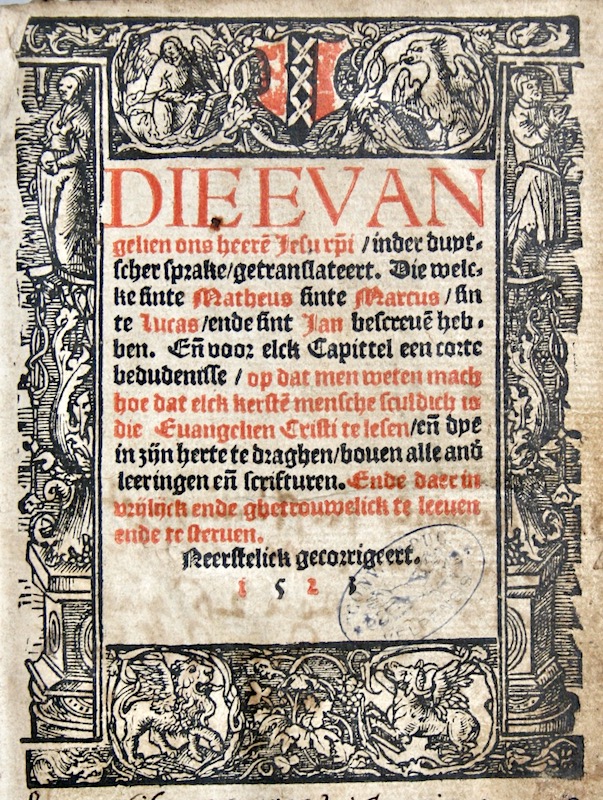 DIE EVAN
gelien ons heerē Jesu rp̄i / inder duyt⸗
scher sprake/getranslateert. Die welc⸗
ke sinte Matheus sinte Marcus / sin
te Lucas/ende sint Jan bescreuē heb⸗
ben. Eñ voor elck Capittel een corte
bedudenisse / op dat men weten mach
hoe dat elck kerstē mensche sculdich is
die Euangelien Cristi te lesen/eñ dye
in zijn herte te draghen/bouen alle and̄
leeringen eñ scrifturen. Ende daer in
vrijlijck ende ghetrouwelick te leeuen
ende te steruen.
Neerstelick gecorrigeert.
1 5 2 3